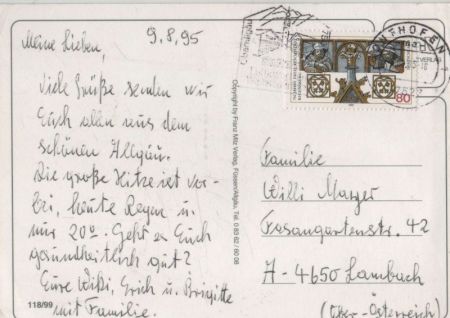 9.8.95
Meine Lieben,
Viele Grüße senden wir
Euch allen aus dem
schönen Allgäu.
Die große Hitze ist vor-
bei, heute Regen u.
nur 20°. Geht es Euch
gesundheitlich gut?
Eure Wißi, Erich u. Brigitte
mit Familie.
118/99
Copyright by Franz Milz Verlag, Füssen/Allgäu, Tel. 0 83 62 / 60 08
80
Familie
Willi Mayer
Fasangartenstr. 42
A-4650 Lambach
(Ober-Österreich)